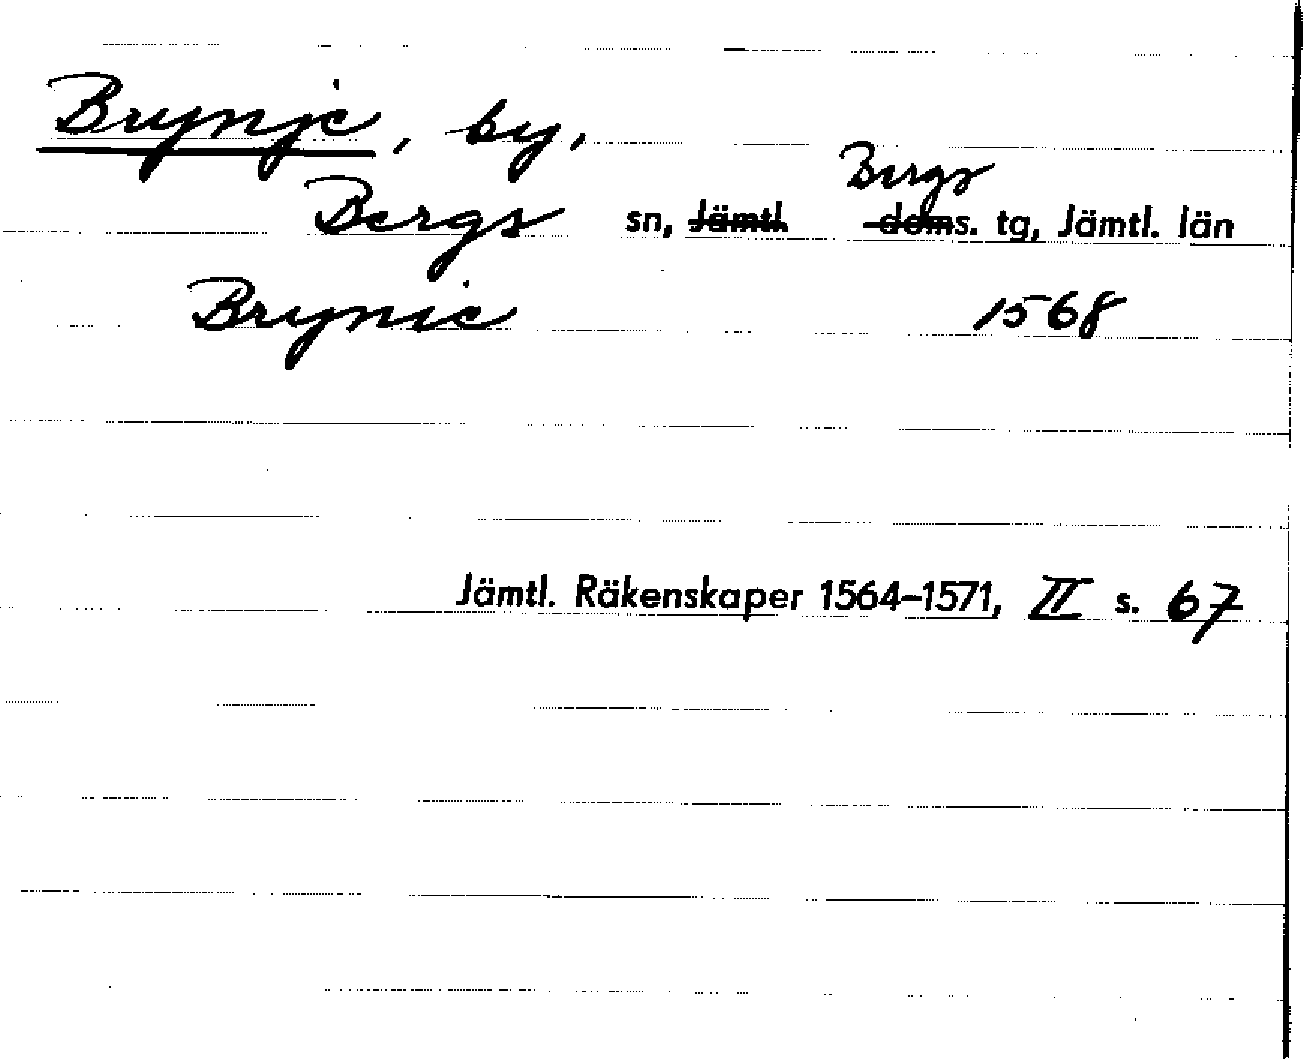 Brynje, by,
Bergs sn, Jämtl. Bergs -doms. tg, Jämtl. län
Brynie 1568
Jämtl. Räkenskaper 1564–1571, II s. 67